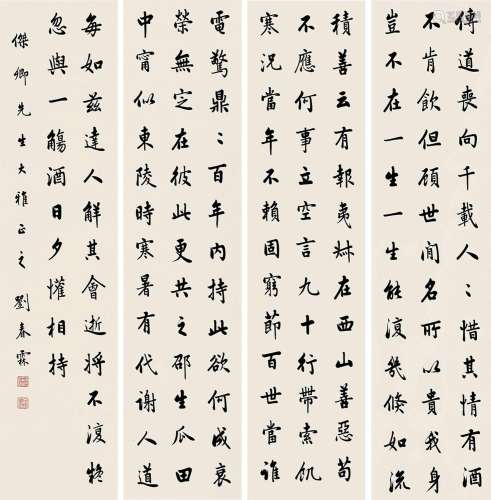 傳道喪向千載人〻惜其情有酒
不肯飲但顧世間名所以貴我身
豈不在一生一生能復幾倏如流
積善云有報夷叔在西山善惡苟
不應何事立空言九十行帶索飢
寒況當年不賴固窮節百世當誰
電驚鼎〻百年內持此欲何成衰
榮無定在彼此更共之邵生瓜田
中甯似東陵時寒暑有代謝人道
每如茲達人解其會逝將不復疑
忽與一觴酒日夕懽相持
傑卿先生大雅正之 劉春霖